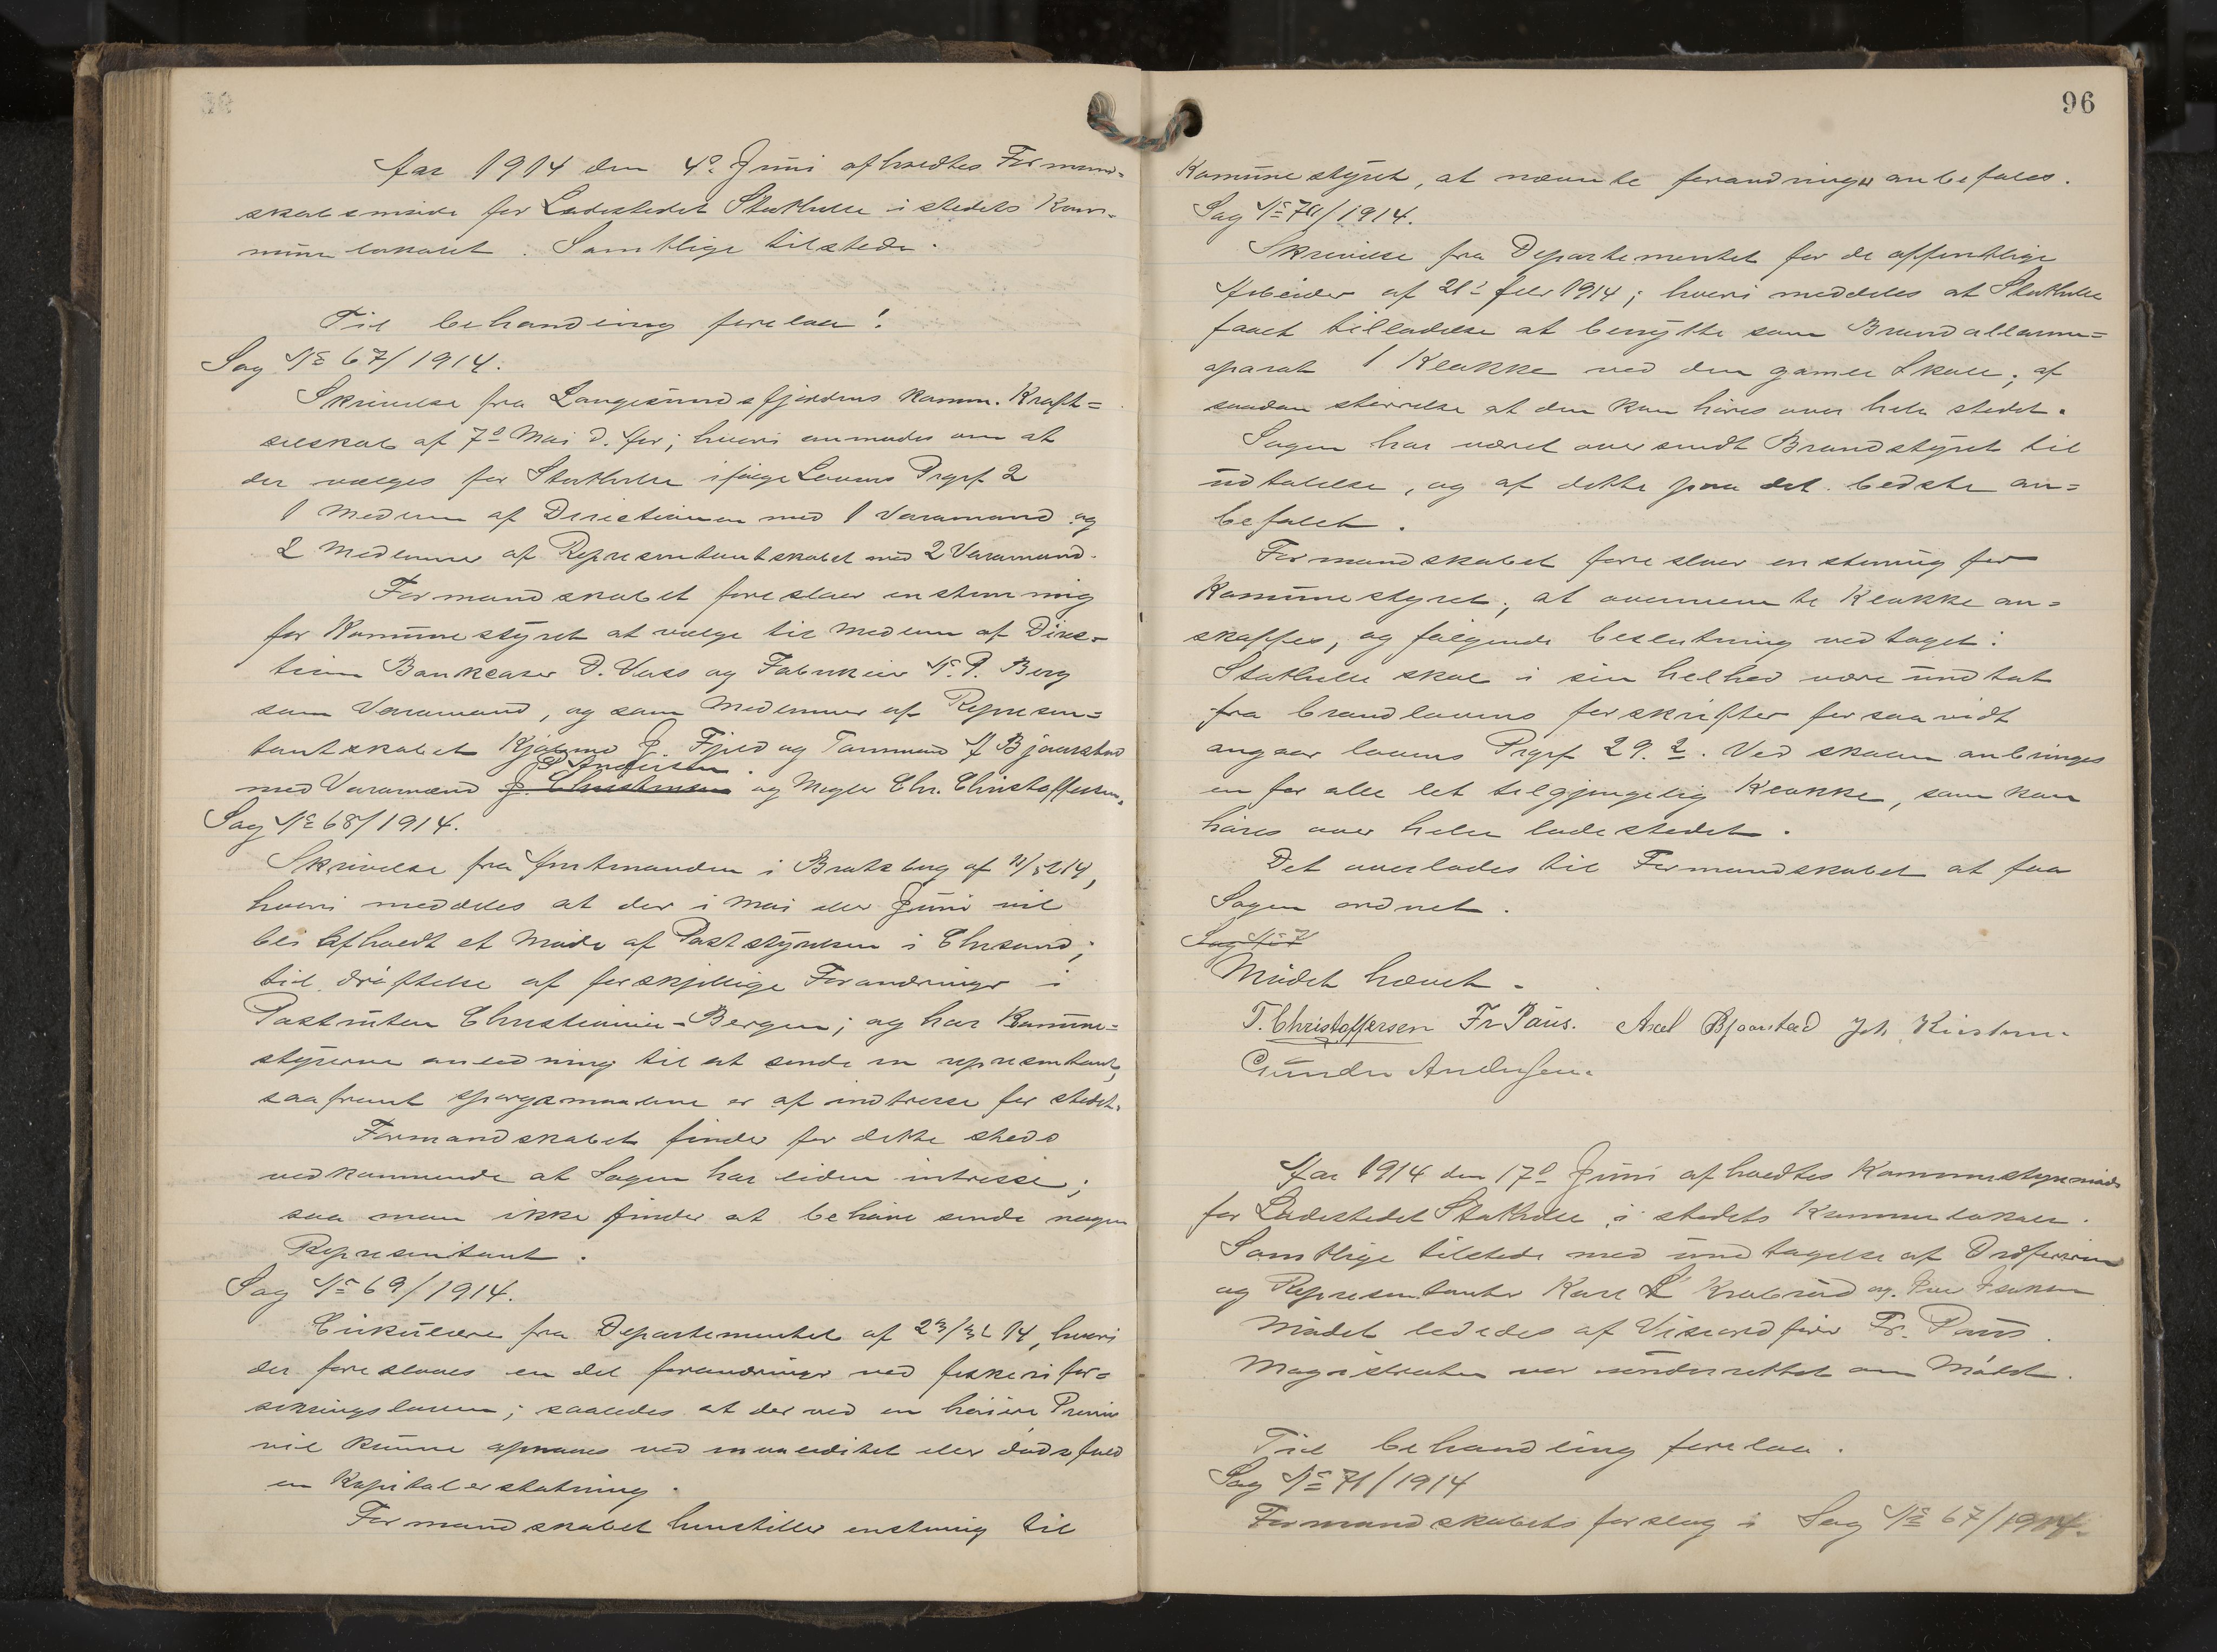 Aar 1914 den 4de Juni afholdtes Formand-
skabsmøde for Ladestedet Stathelle i stedets Kom-
mune lokalet. Samtlige tilstede.
Til behandling forelaa!
Sag No 67/1914.
Skrivelse fra Langesundsfjordens komm. Kraft=
selskab af 7de Mai d. Aar; hvori anmodes om at
der vælges for Stathelle ifølge Lovens Prgrf 2
1 Medlem af Direktionen med 1 Varamand og
2 Medlemmer af Representantskabet med 2 Varamænd.
Formandskabet foreslaar enstemmig
for Kommunestyret at vælge til Medlem af Direk-
tion Bankkaser D. Vass og Fabrikeier N. P. Berg
som Varamand, og som Medlemmer af Represen=
tantskabet Kjøbmd J. Fjeld og Tømmermd A Bjaarstad
G Andersen
med Varamænd J. Christensen og Megler Chr. Christoffersen.
Sag No 68/1914.
Skrivelse fra Amtmanden i Bratsberg af 11/5 14,
hvori meddeles at der i Mai eller Juni vil
bli afholdt et Møde af Poststyrelsen i Chrsand;
til drøftelse af forskjellige Forandringer i
Postruten Christiania-Bergen; og har Kommune=
styrerne anledning til at sende en representant,
saafremt spørgsmaalene er af indtresse for stedet.
Formandskabet finder for dette steds
vedkommende at Sagen har liden intresse;
saa man ikke finder at behøve sende nogen
Representant.
Sag No 69/1914.
Cirkulære fra Departementet af 23/3 14, hvori
der foreslaaes en del forandringer ved fiskerifor=
sikringsloven; saaledes at der ved en høiere Premie
vil kunne opnaaes ved invaliditet eller dødsfald
en Kapitalerstatning.
Formandskabet henstiller enstemig til
96
Kommunestyret, at nævnte forandringer anbefales.
Sag No 70/1914.
Skrivelse fra Departementet for de offentlige
Arbeider af 21de febr 1914; hvori meddeles at Stathelle
faaet tilladelse at benytte som Brandallarm=
aparat 1 Klokke ved den gamle Skole; af
saadan størrelse at den kan høres over hele stedet.
Sagen har været oversendt Brandstyret til
udtalelse, og af dette paa det bedste an=
befalet.
Formandskabet foreslaar enstemig for
Kommunestyret; at ovennevnte Klokke an=
skaffes, og følgende beslutning vedtaget:
Stathelle skal i sin helhed være undtat
fra brandlovens forskrifter forsaavidt
angaar lovens Prgrf 29.2. Ved skolen anbringes
en for alle let tilgjængelig Klokke, som kan
høres over hele ladestedet.
Det overlades til Formandskabet at faa
Sagen ordnet.
Sag No 7
Mødet hævet.
T. Christoffersen Fr Paus. Axel Bjaarstad Joh. Kirstens.
Gunder Andersen.
Aar 1914 den 17de Juni afholdtes Kommunestyremøde
for Ladestedet Stathelle i stedets Kommunelokale.
Samtlige tilstede med undtagelse af Ordføreren
og Representanter Karl L Krabrud og
Mødet lededes af Viseordfører Fr. Paus.
Magistraten var underrettet om Mødet.
Til behandling forelaa.
Sag No 71/1914
Formandskabets forslag i Sag No 67/1914.